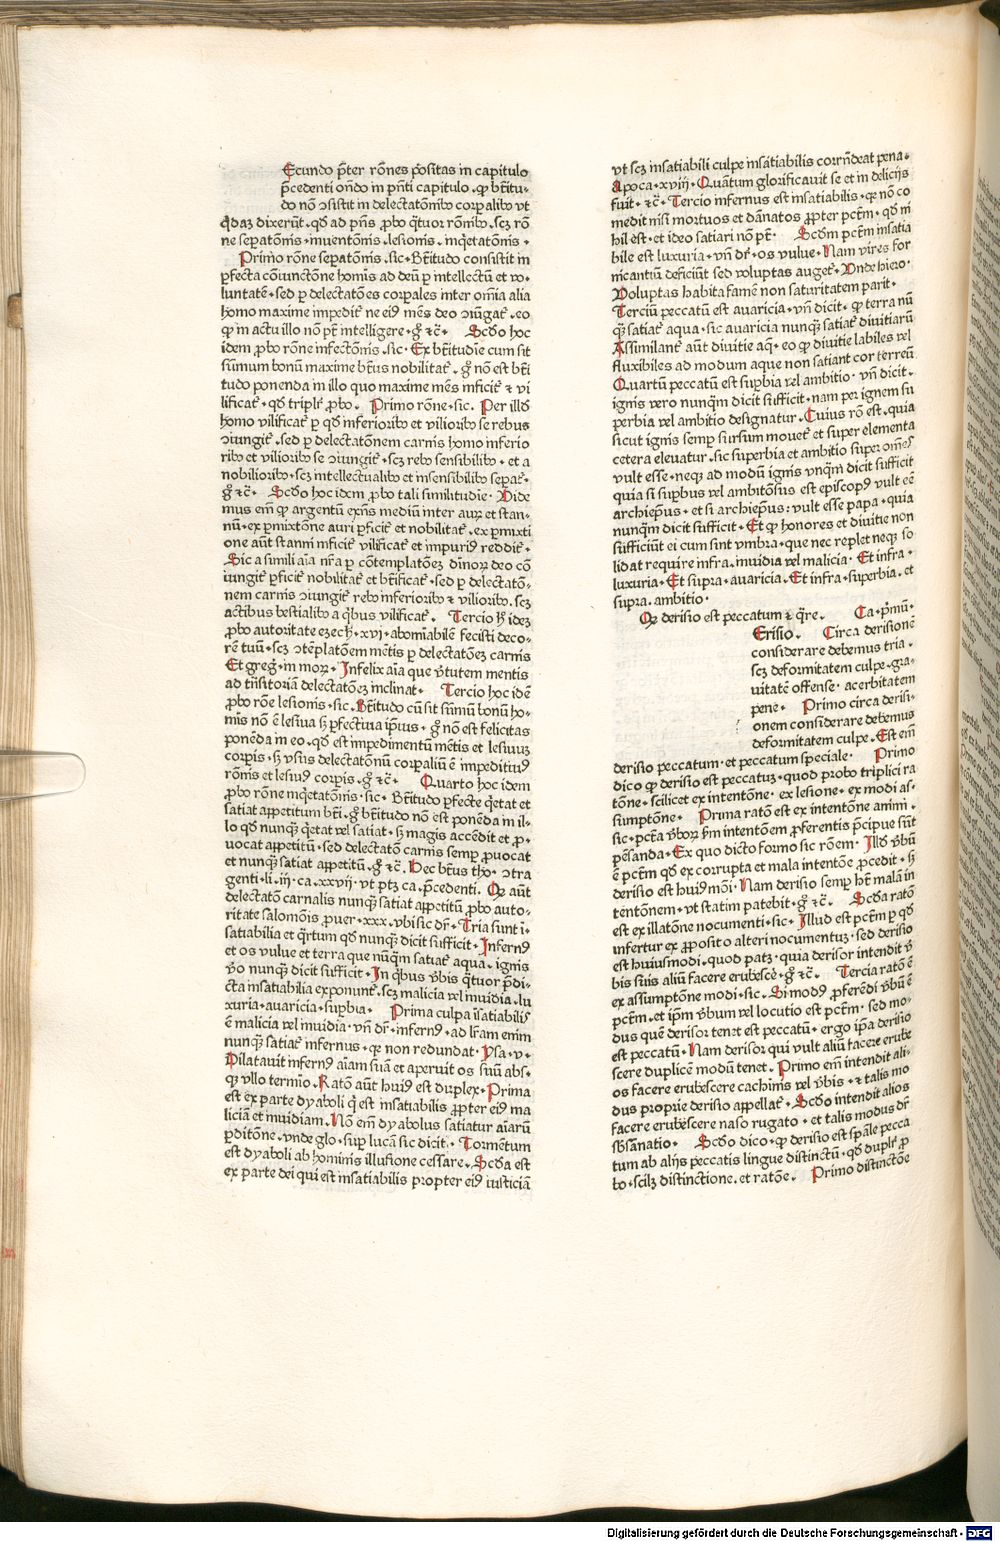 Ecundo p̄ter rōnes p̄ositas in capitulo
p̄cedenti on̄do in pn̄ti capitulo . ꝙ bt̄itu-
do nō ↄsistit in delectatōnibꝰ corꝑalibꝰ vt
qͥdaꝫ dixerūt . qd̄ ad pn̄s ꝓbo qͣtuor rōnibꝰ . scꝫ rō
ne seꝑatōnis . inuentōnis . lesionis . inqͥetatōnis .
Primo rōne seꝑatōnis . sic . Bt̄itudo consistit in
ꝑfecta cōiunctōne hominis ad deū ꝑ intellectū et vo-
luntatē . sed ꝑ delectatōes corꝑales inter om̄ia alia
homo maxime impedit᷑ ne eiꝰ mēs deo ↄiūgat᷑ . eo
ꝙ in actu illo nō pt̄ intelligere . g̊ ⁊c̄ . Scd̄o hoc
idem ꝓbo rōne infectōnis . sic . Ex bt̄itudīe cum sit
summum bonū maxime bt̄us nobilitat᷑ . g̊ nō est bt̄i
tudo ponenda in illo quo maxime mēs inficit᷑ ⁊ vi
lificat᷑ . qd̄ triplr̄ ꝓbo . Primo rōne . sic . Per illd̄
homo vilificat᷑ ꝑ qd̄ inferioribꝰ et vilioribꝰ se rebus
ↄiungit᷑ . sed ꝑ delectatōnem carnis homo inferio
ribꝰ et vilioribꝰ se ↄiungit᷑ . scꝫ rebꝰ sensibilibꝰ . et a
nobilioribꝰ . scꝫ intellectualibꝰ et insensibilibꝰ seꝑat᷑ .
g̊ ⁊c̄ . Scd̄o hoc idem ꝓbo tali similitudīe . Vide
mus em̄ ꝙ argentū exn̄s mediū inter auꝝ et stan-
nū . ex ꝑmixtōne auri ꝑficit᷑ et nobilitat᷑ . ex ꝑmixti
one aūt stanni inficit᷑ vilificat᷑ et impuriꝰ reddit᷑ .
Sic a simili aīa nr̄a ꝑ cōtemplatōeꝫ diuinoꝝ deo cō
iungit᷑ ꝑficit᷑ nobilitat᷑ et bt̄ificat᷑ . sed ꝑ delectatō-
nem carnis ↄiungit᷑ rebꝰ inferioribꝰ ⁊ vilioribꝰ . scꝫ
actibus bestialibꝰ a qͥbus vilificat᷑ . Tercio h̄ ideꝫ
ꝓbo autoritate ezech . xvj . abomiabilē fecisti deco-
rē tuū . scꝫ ↄtēplatōem mētis ꝑ delectatōeꝫ carnis
Et greg̊ . in moꝝ . Infelix aīa que v̄tutem mentis
ad trāsitoriā delectatōeꝫ inclinat . Tercio hoc idē
ꝓbo rōe lesionis . sic . Bt̄itudo cū sit summū bonū ho-
mīs nō ē lesiua sꝫ ꝑfectiua ipsius . g̊ nō est felicitas
ponēda in eo . qd̄ est impedimentū mētis et lesiuuꝫ
corpis . sꝫ vsus delectatōnū corꝑaliū ē impeditiuꝰ
rōnis et lesiuꝰ corꝑis . g̊ ⁊c̄ . Quarto hoc idem
ꝓbo rōne inqͥetatōnis . sic . Bt̄itudo ꝑfecte qͥetat et
satiat appetitum bt̄i . g̊ bt̄itudo nō est ponēda in il-
lo qd̄ nunqͣꝫ qͥetat vel satiat . sꝫ magis accēdit et ꝓ-
uocat appetitū . sed delectatō carnis semꝑ ꝓuocat
et nunqͣꝫ satiat appetitū . g̊ ⁊c̄ . Hec bt̄us tho . ↄtra
genti . li . iij . ca . xxvij . vt ptꝫ ca . p̄cedenti . Qꝙ aūt
delectatō carnalis nunqͣꝫ satiat appetitū ꝓbo auto-
ritate salomōis ꝓuer . xxx . vbi sic dr̄ . Tria sunt ī-
satiabilia et qͣrtum qd̄ nunqͣꝫ dicit sufficit . Infernꝰ
et os vulue et terra que nūqͣꝫ satiat᷑ aqua . ignis
v̄o nunqͣꝫ dicit sufficit . In qͥbus v̄bis qͣtuor p̄di-
cta insatiabilia exponunt᷑ . scꝫ malicia vel inuidia . lu
xuria . auaricia . suꝑbia . Prima culpa īsatiabilis
ē malicia vel inuidia . vn̄ dr̄ . infernꝰ . ad lr̄am enim
nunqͣꝫ satiat᷑ infernus . ꝙ non redundat . Ysa . v .
Dilatauit infernꝰ aīam suā et aperuit os suū abs-
qꝫ vllo termīo . Ratō aūt huiꝰ est duplex . Prima
est ex parte dyaboli qͥ est insatiabilis ꝓpter eiꝰ ma
liciā et inuidiam . Nō em̄ dyabolus satiatur aīarū
ꝑditōne . vnde glo . suꝑ lucā sic dicit . Tormētum
est dyaboli ab hominis illusione cessare . Scd̄a est
ex parte dei qui est insatiabilis propter eiꝰ iusticiā
vt scꝫ insatiabili culpe insatiabilis corrn̄deat pena .
Apoca . xviij . Quātum glorificauit se et in delicijs
fuit . ⁊c̄ . Tercio infernus est insatiabilis . ꝙ nō co
medit nisi mortuos et dānatos ꝓpter pctm̄ . qd̄ ni
hil est . et ideo satiari nō pt̄ . Scd̄m pctm̄ insatia
bile est luxuria . vn̄ dr̄ . os vulue . Nam vires for
nicantiū deficiūt sed voluptas auget᷑ . Vnde hiero .
Voluptas habita famē non saturitatem parit .
Terciū peccatū est auaricia . vn̄ dicit . ꝙ terra nū
qͣꝫ satiat᷑ aqua . sic auaricia nunqͣꝫ satiat᷑ diuitiarū
Assimilant᷑ aūt diuitie aq̄ . eo ꝙ diuitie labiles vel
fluxibiles ad modum aque non satiant cor terreū
Quartū peccatū est suꝑbia vel ambitio . vn̄ dicit .
ignis vero nunqͣꝫ dicit sufficit . nam per ignem su
perbia vel ambitio designatur . Cuius rō est . quia
sicut ignis semꝑ sursum mouet᷑ et super elementa
cetera eleuatur . sic superbia et ambitio super om̄es
vult esse . neqꝫ ad modū ignis vnqͣꝫ dicit sufficit
quia si suꝑbus vel ambitiōsus est episcopꝰ vult eē
archiep̄us . et si archiep̄us : vult esse papa . quia
nunqͣꝫ dicit sufficit . Et ꝙ honores et diuitie non
sufficiūt ei cum sint vmbra . que nec replet neqꝫ so
lidat require infra . inuidia vel malicia . Et infra .
luxuria . Et supra . auaricia . Et infra . superbia . et
supra . ambitio .
Qꝙ derisio est peccatum ⁊ qͣre . Ca . pͥmū .
Erisio . Circa derisionē
considerare debemus tria .
scꝫ deformitatem culpe . gra-
uitatē offense . acerbitatem
pene . Primo circa derisi-
onem considerare debemus
deformitatem culpe . Est em̄
derisio peccatum . et peccatum speciale . Primo
dico ꝙ derisio est peccatuꝫ . quod probo triplici ra
tōne . scilicet ex intentōne . ex lesione . ex modi as-
sumptōne . Prima ratō est ex intentōne animi .
sic . pctā v̄boꝝ sm̄ intentōem ꝓferentis p̄cipue sūt
pēsanda . Ex quo dicto formo sic rōem . Illd̄ v̄bū
ē pctm̄ qd̄ ex corrupta et mala intentōe ꝓcedit . sꝫ
derisio est huiꝰmōi . Nam derisio semꝑ hꝫ malā in
tentōnem . vt statim patebit . g̊ ⁊c̄ . Scd̄a ratō
est ex illatōne nocumenti . sic . Illud est pctm̄ ꝑ qd̄
infertur ex ꝓposito alteri nocumentuꝫ . sed derisio
est huiusmodi . quod patꝫ . quia derisor intendit v̄
bis suis aliū facere erubesce̅ . g̊ ⁊c̄ . Tercia ratō ē
ex assumptōne modi . sic . Si modꝰ ꝓferēdi v̄bū ē
pctm̄ . et ip̄m v̄bum vel locutio est pctm̄ . sed mo-
dus quē derisor tenet est peccatū . ergo ip̄a derisio
est peccatū . Nam derisor qui vult aliū facere erube
scere duplicē modū tenet . Primo em̄ intendit ali-
os facere erubescere cachinis vel v̄bis . ⁊ talis mo
dus proprie derisio appellat᷑ . Scd̄o intendit alios
facere erubescere naso rugato . et talis modus dr̄
sb̄sānatio . Scd̄o dico . ꝙ derisio est spāle pecca
tum ab alijs peccatis lingue distinctū . qd̄ duplr̄ ꝓ
bo . scilꝫ distinctione . et ratōe . Primo distinctōe
Digitalisierung gefördert durch die Deutsche Forschungsgemeinschaft - DFG